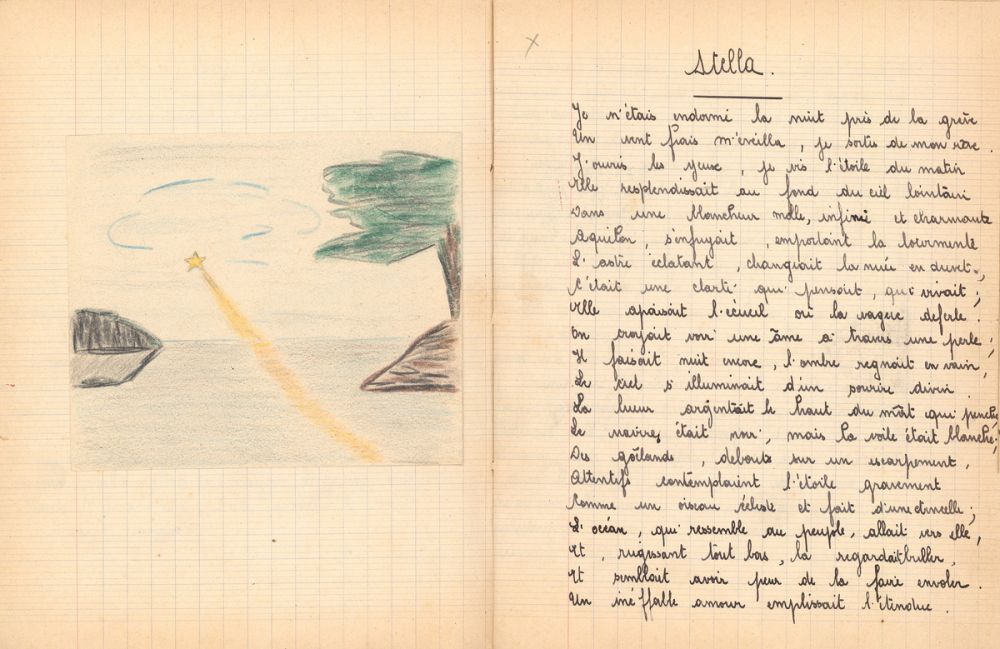 Stella.
Je m'étais endormi la nuit près de la grève
Un vent frais m'éveilla, je sortis de mon rêve.
J'ouvris les yeux, je vis l'étoile du matin
Elle resplendissait au fond du ciel lointain
Dans une blancheur molle, infinie et charmante
Aquilon, s'enfuyait, emportant la tourmente
L'astre éclatant, changeait la nuée en duvet.,
C'était une clarté qui pensait, qui vivait ;
Elle apaisait l'écueil où la vague déferle.
On croyait voir une âme à travers une perle ;
Il faisait nuit encore, l'ombre regnait en vain,
Le ciel s'illuminait d'un sourire divin.
La lueur argentait le haut du mât qui penche,
Le navire, était noir, mais la voile était blanche ;
Des goëlands, debouts sur un escarpement,
Attentifs contemplaient l'étoile gravement
Comme un oiseau céleste et fait d'une étincelle ;
L'océan, qui ressemble au peuple, allait vers elle,
Et, rugissant tout bas, la regardait briller,
Et semblait avoir peur de la faire envoler.
Un ineffable amour emplissait l'étendue.